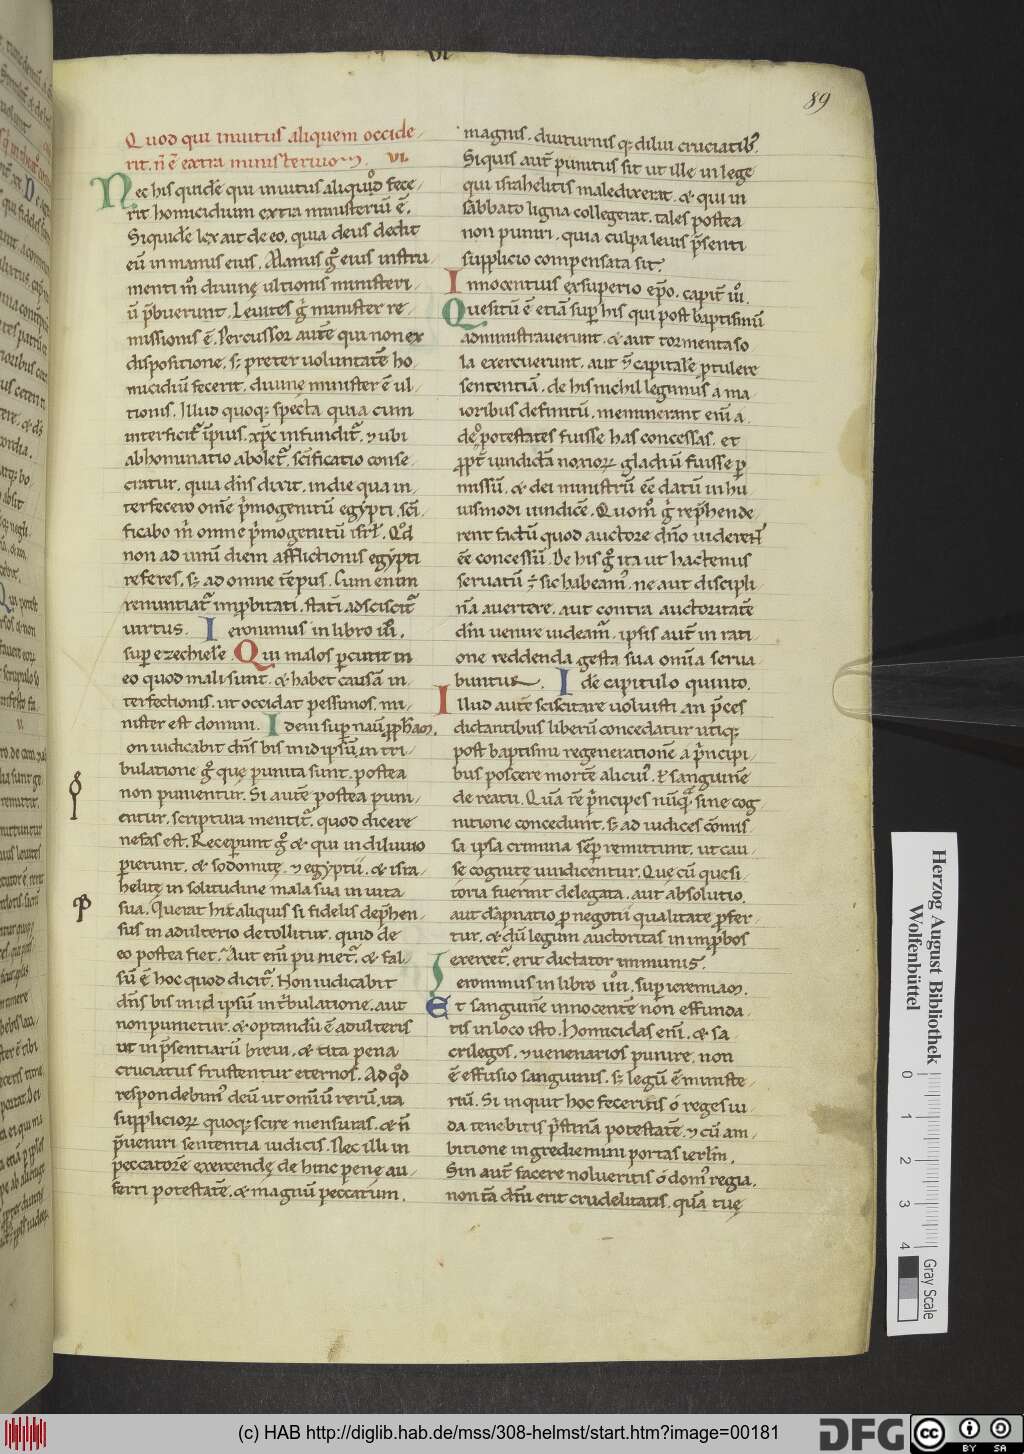 89
Quod qui inuitus aliquem occide
rit. ñ ē extra ministerium. VI.
Nec his quidē qui inuitus aliquid fece
rit homicidium extra ministeriū ē.
Siquidē lex ait de eo. quia deus dedit
eū in manus eius. Manus gͦ eius instru
menti m̊ diuinę ultionis ministeri
ū p̄buerunt. Leuites gͥ minister re
missionis ē. Percussor autē qui non ex
dispositione. sꝫ preter uoluntatē ho
micidiū fecerit. diuinę minister ē ul
tionis. Illud quoqꝫ specta quia cum
interficit̃ ip̄ius. xp̄c infundit̃. ⁊ ubi
abhominatio abolet̃. sc̄ificatio conse
cratur. quia dn̄s dixit. in die qua in
terfecero om̄e p̄mogenitū egypti. sc̄i
ficabo m̥ omne p̄mogenitū isrl̄. Qd̊
non ad unū diem afflictionis egypti
referes. sꝫ ad omne tēpus. Cum enim
renuntiat̃ inp̱bitati. statī adsciscit̃
uirtus. Ieronimus in libro iiī.
sup̱ ezechiele. Qui malos p̱cutit in
eo quod mali sunt. & habet causā in
terfectionis. ut occidat pessimos. mi
nister est domini. Idem sup̱ naū p̱ph̄am.
on iudicabit dn̄s bis in id ipsū. in tri
bulatione gͦ quę punita sunt. postea
non punientur. Si autē postea puni
entur. scriptura mentit̃. quod dicere
nefas est. Recep̱unt gͦ & qui in diluuio
p̱ierunt. & sodomitę. ⁊ egyptii. & isra
helitę in solitudine mala sua in uita
sua. Querat hic aliquis si fidelis dep̄hen
sus in adulterio detollitur. quid de
eo postea fiet. Aut enī puniet̃. & fal
sū ē hoc quod dicit̃. Non iudicabit
dn̄s bis in id ipsū in tͥbulatione. aut
non punietur. & optandū ē adulteris
ut in p̄sentiarū breui. & cita pena
cruciatus frustentur eternos. Ad qd̊
respondebimꝰ deū ut omīū rerū. ita
supplicioꝝ quoqꝫ scire mensuras. & ñ
p̄ueniri sententia iudicis. Nec illi in
peccatorē exercendę de hinc penę au
ferri potestatē. & magnū peccatum.
magnis. diuturnisqꝫ dilui cruciatibꝰ.
Siquis aut̄ punitus sit ut ille in lege
qui israhelitis maledixerat. & qui in
sabbato ligna collegerat. tales postea
non puniri. quia culpa leuis p̄senti
supplicio compensata sit.
Innocentius exsuperio ep̄o. capit̃ iiī.
Quesitū ē etiā sup̱ his qui post baptismū
administrauerunt. & aut tormenta so
la exercuerunt. aut & capitalē p̱tulere
sententiā. de his nichil legimus a ma
ioribus definitū. meminerant enī a
deͦ potestates fuisse has concessas. et
p̱pt̃ uindictā noxioꝝ gladiū fuisse p̱
missū. & dei ministrū eē datū in hu
iusmodi uindicē. Quom̊ gͥ rep̄hende
rent factū quod auctore dn̄o uiderent
eē concessū. De his gͦ ita ut hactenus
seruatū ÷ sic habeamꝰ. ne aut discipli
nā auertere. aut contra auctoritatē
dn̄i uenire uideamꝰ. ipsis aut̄ in rati
one reddenda gesta sua om̄ia serua
buntur. Idē capitulo quinto.
Illud autē sciscitare uoluisti an p̄ces
dictantibus liberū concedatur utiqꝫ
post baptismi regenerationē a p̄ncipi
bus poscere mortē alicuiꝰ. & sanguinē
de reatu. Quā rē p̄ncipes nūq̄ sine cog
nitione concedunt. sꝫ ad iudices cōmis
sa ipsa crimina semp̱ remittunt. ut cau
sę cognitę uindicentur. Que cū quesi
toria fuerint delegata. aut absolutio
aut dāpnatio p̱ negotii qualitate p̱fer
tur. & dū legum auctoritas in inp̱bos
exercet̃. erit dictator immunis.
Ieronimus in libro iiii. sup̱ ieremiam.
Et sanguinē innocentē non effunda
tis in loco isto. Homicidas enī. & sa
crilegos. ⁊ uenenarios punire. non
ē effusio sanguinis. sꝫ legū ē ministe
riū. Si inquit hoc feceritis ó reges iu
da tenebitis p̄stinā potestatē. ⁊ cū am
bitione ingredremini portas ierlm̄.
Sin aut̄ facere nolueritis ó domꝰ regia.
non tā dn̄i erit crudelitatis. quā tuę
Herzog August Bibliothek
Wolfenbüttel
0 1 2 3 4
Gray Scale
(c) HAB http://diglib.hab.de/mss/308-helmst/start.htm?image=00181
DFG
cc BY SA